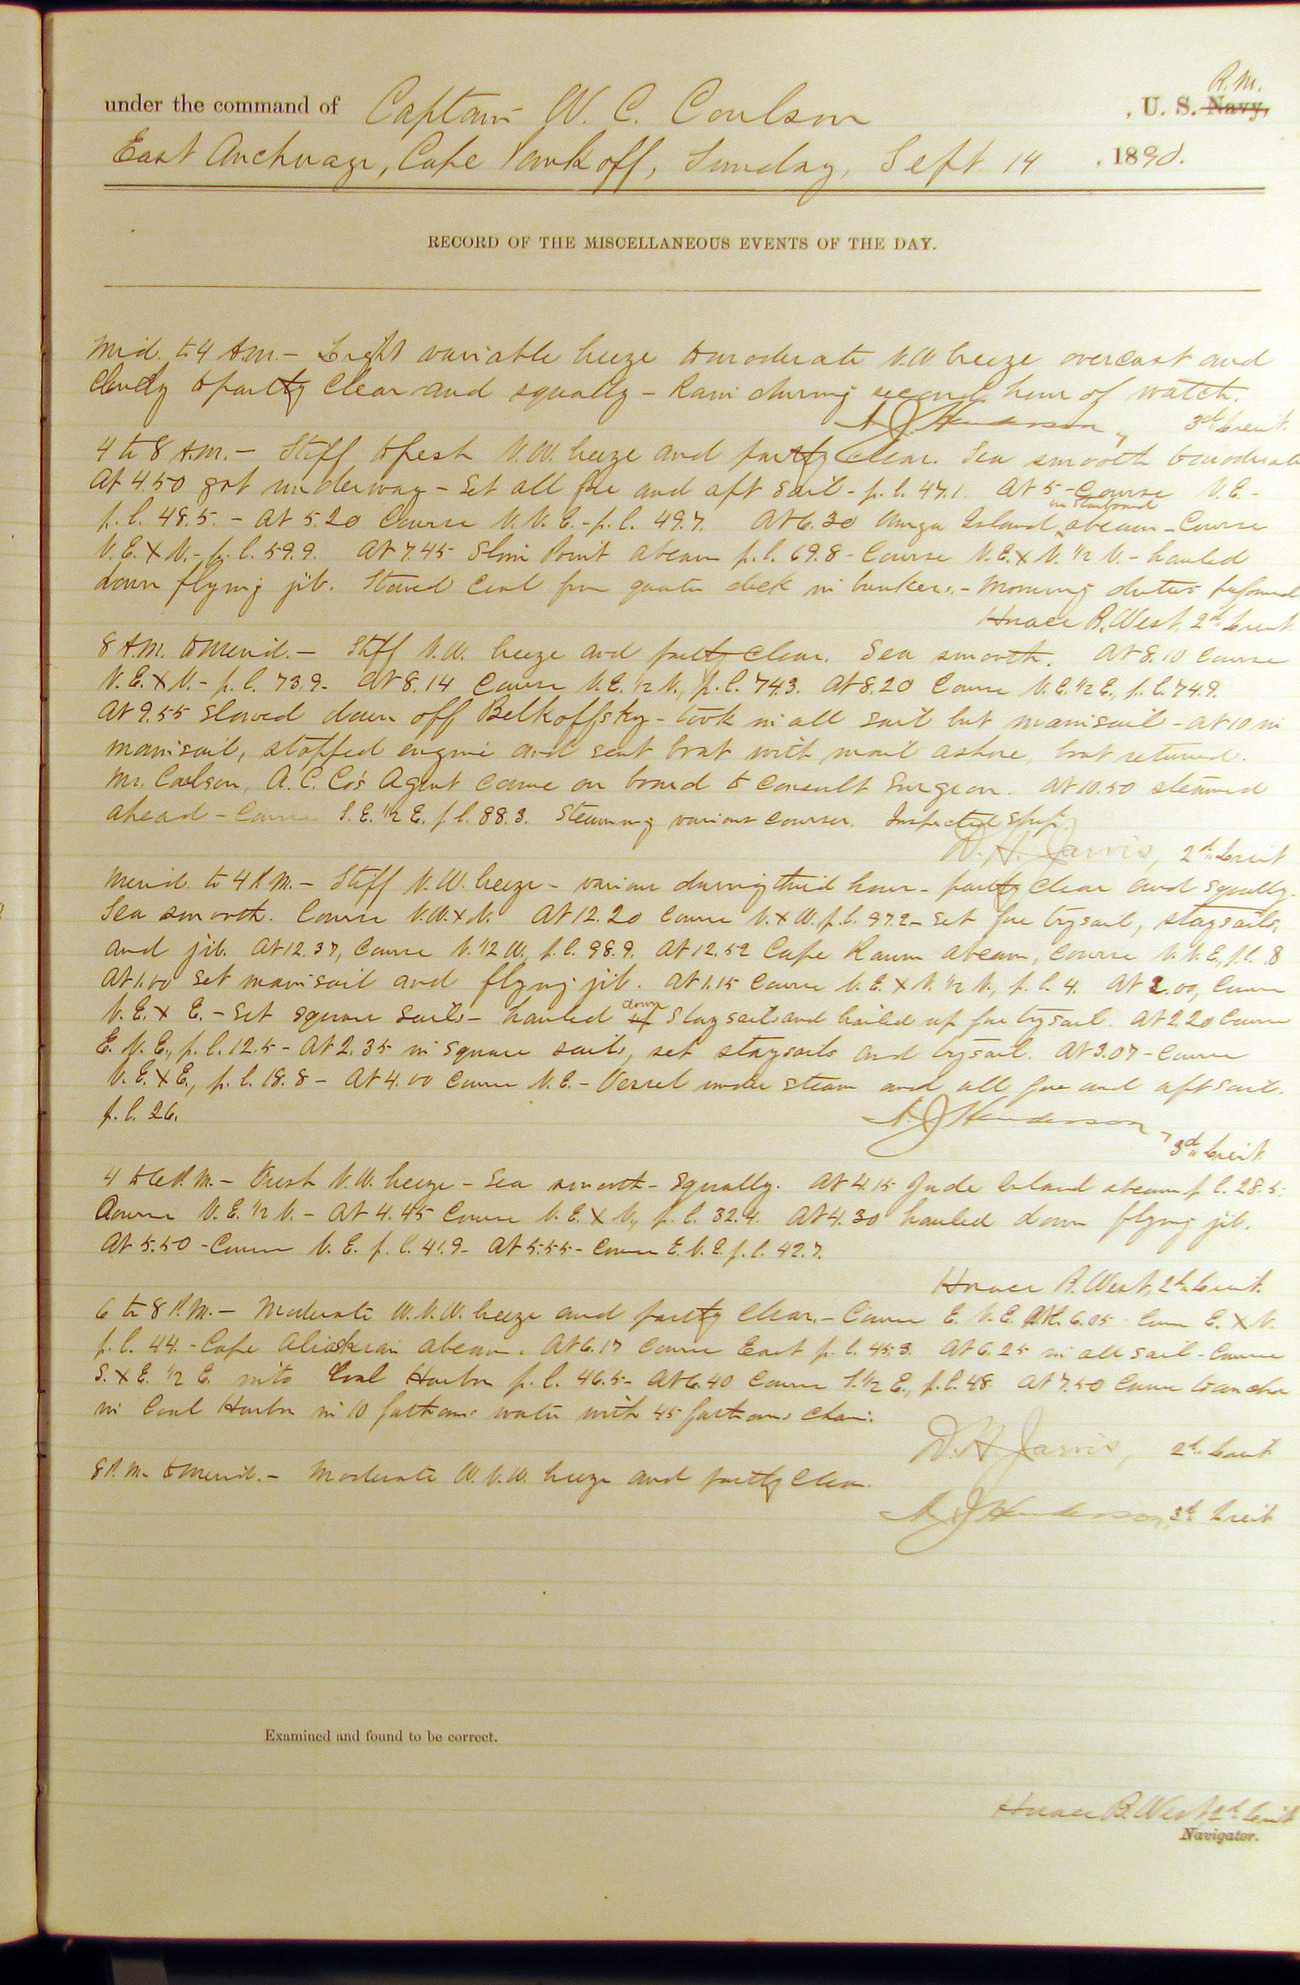 R.M.
under the command of Captain W. C. Coulson , U. S. Navy,
East Anchorage, Cape Pankoff, Sunday, Sept 14 , 1890.
RECORD OF THE MISCELLANEOUS EVENTS OF THE DAY.
Mid. to 4 A.M. – Light variable breeze to moderate N.W. breeze overcast and
cloudy to partly clear and squally – Rain during second hour of watch.
A J Henderson, 3d Lieut.
4 to 8 A.M. – Stiff to fresh N.W. breeze and partly clear. Sea smooth to moderate
At 4.50 got underway – Set all fore and aft sail – p.l. 47.1. At 5 – Course N.E. –
p.l. 48.5. – At 5.20 Course N.N.E. – p.l. 49.7. At 6.30 Amga Island on starboard abeam – Course
N.E. X N. – p.l. 59.9. At 7.45 Slim Point abeam p.l. 69.8 – Course N.E. X N. ½ N. – hauled
down flying jib. Stowed coal from quarter deck in bunkers. – Morning duties performed
Horace B. West. 2d Lieut
8 A.M. to Merid. – Stiff N.W. breeze and partly clear. Sea smooth. At 8.10 Course
N.E. X N. – p.l. 73.9. At 8.14 Course N.E. ½ N., p.l. 74.3. At 8.20 Course N.E. ½ E., p.l. 74.9.
At 9.55 slowed down off Belkoffsky – took in all sail but mainsail – at 10 in
mainsail, stopped engine and sent boat with mail ashore, boat returned.
Mr. Carlson, A.C. Co's Agent came on board to consult Surgeon. At 10.50 steamed
ahead – Course S.E. ½ E. p.l. 88.3. Steaming various courses. Inspected ship.
D. H. Jarvis, 2d Lieut
Merid. to 4 P.M. – Stiff N.W. breeze – various during third hour – partly clear and squally.
Sea smooth. Course N.W. X N. At 12.20 Course N. X W. p.l. 97.2 – set fore trysail, staysails,
and jib. At 12.37, Course N. ½ W., p.l. 98.9. At 12.52 Cape abeam, Course N.N.E., p.l. .8
At 1.00 set mainsail and flying jib. At 1.15 Course N.E. X N. ½ N., p.l. 4. At 2.00, Course
N.E. X E. – Set square sails – hauled up down staysails and brailed up fore trysail. At 2.20 Course
E.N.E., p.l. 12.5 – At 2.35 in square sails, set staysails and trysail. At 3.07 – Course
N.E. X E., p.l. 18.8 – At 4.00 Course N.E. – Vessel under steam and all fore and aft sail.
p.l. 26.
A J Henderson, 3d Lieut
4 to 6 P.M. – Fresh N.W. breeze – Sea smooth – Squally. At 4.15 Jude Island abeam p.l. 28.5 –
Course N.E. ½ N. – At 4.45 Course N.E. X N., p.l. 32.4. At 4.30 hauled down flying jib.
At 5.50 – Course N.E. p.l. 41.9 – At 5.55 – Course E.N.E. p.l. 42.7.
Horace B. West, 2d Lieut.
6 to 8 P.M. – Moderate W.N.W. breeze and partly clear. – Course E.N.E. At 6.05 – Course E. X N.
p.l. 44. – Cape Aliaskrin abeam. At 6.17 Course East p.l. 45.3. At 6.25 in all sail – Course
S. X E. ½ E. into Coal Harbor p.l. 46.5 – At 6.40 Course S. ½ E., p.l. 48. At 7.50 Came to anchor
in Coal Harbor in 10 fathoms water with 45 fathoms chain.
D. H. Jarvis, 2d Lieut
8 P.M. to Merid. – Moderate W.N.W. breeze and partly clear.
A J Henderson, 3d Lieut
Examined and found to be correct.
Horace B. West 2d Lieut
Navigator.